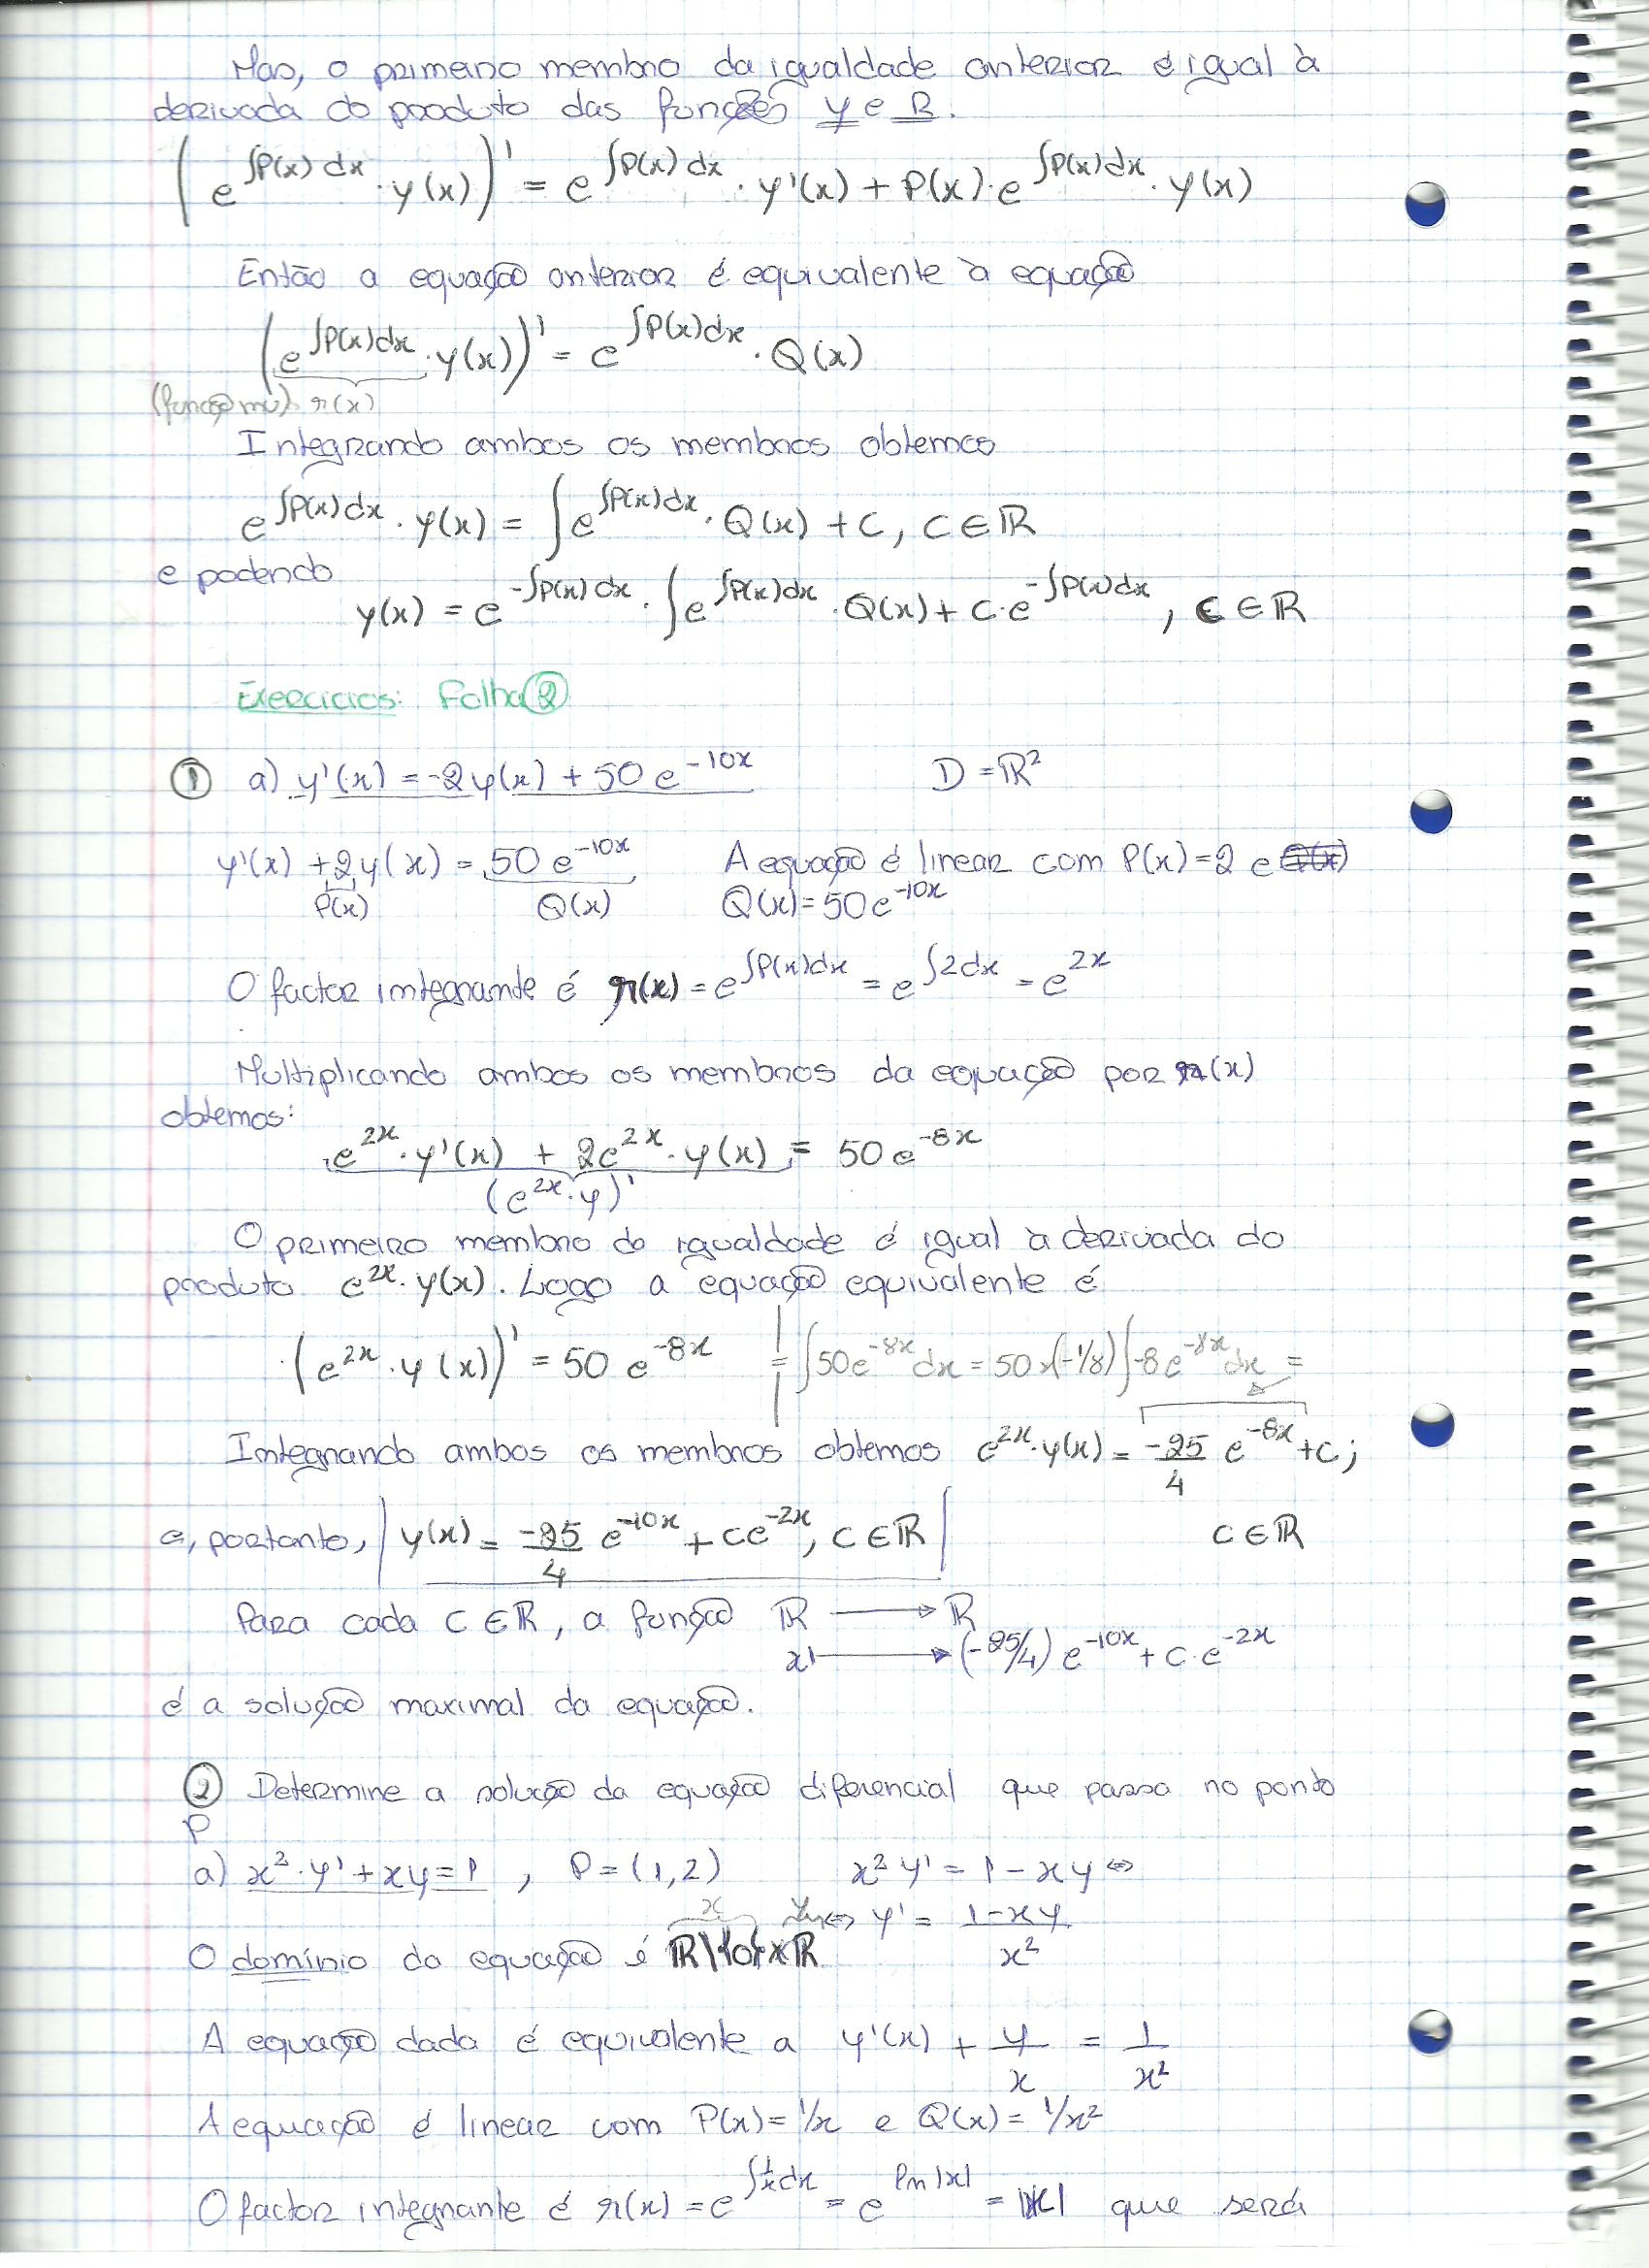 Mas, o primeiro membro da igualdade anterior é igual à
derivada do produto das funções y e R.
(e^∫P(x)dx · y(x))' = e^∫P(x)dx · y'(x) + P(x)·e^∫P(x)dx · y(x)
Então a equação anterior é equivalente à equação
(e^∫P(x)dx · y(x))' = e^∫P(x)dx · Q(x)
(função mú) r(x)
Integrando ambos os membros obtemos
e^∫P(x)dx · y(x) = ∫e^∫P(x)dx · Q(x) + C, C∈ℝ
e
y(x) = e^-∫P(x)dx · ∫e^∫P(x)dx · Q(x) + C·e^-∫P(x)dx, C∈ℝ
Exercícios: Folha 2
① a) y'(x) = -2y(x) + 50e^-10x D = ℝ²
y'(x) + 2y(x) = 50e^-10x A equação é linear com P(x)=2 e
P(x) Q(x) Q(x)=50e^-10x
O factor integrante é r(x) = e^∫P(x)dx = e^∫2dx = e^2x
Multiplicando ambos os membros da equação por r(x)
obtemos:
e^2x · y'(x) + 2e^2x · y(x) = 50e^-8x
(e^2x · y)'
O primeiro membro da igualdade é igual à derivada do
produto e^2x · y(x). Logo a equação equivalente é
(e^2x · y(x))' = 50 e^-8x = ∫50e^-8x dx = 50x(-1/8)∫-8e^-8x dx =
Integrando ambos os membros obtemos e^2x · y(x) = -25/4 e^-8x + C;
e, portanto, y(x) = -25/4 e^-10x + Ce^-2x, C∈ℝ C∈ℝ
Para cada C∈ℝ, a função ℝ → ℝ
x → (-25/4) e^-10x + C·e^-2x
é a solução maximal da equação.
② Determine a solução da equação diferencial que passa no ponto
P
a) x²·y' + xy = 1, P = (1,2) x²y' = 1 - xy ⇔
x y ⇔ y' = (1-xy)/x²
O domínio da equação é ℝ\{0}×ℝ
A equação dada é equivalente a y'(x) + y/x = 1/x²
A equação é linear com P(x) = 1/x e Q(x) = 1/x²
O factor integrante é r(x) = e^∫1/x dx = e^ln|x| = |x| que será